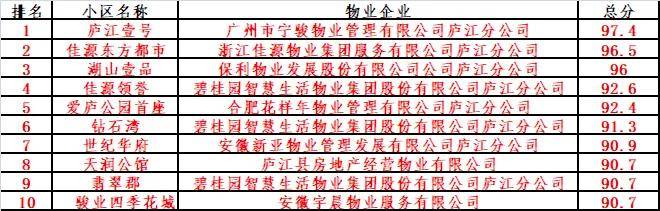 排名 小区名称 物业企业 总分
1 庐江壹号 广州市宁骏物业管理有限公司庐江分公司 97.4
2 佳源东方都市 浙江佳源物业集团服务有限公司庐江分公司 96.5
3 湖山壹品 保利物业发展股份有限公司公司庐江分公司 96
4 佳源领誉 碧桂园智慧生活物业集团股份有限公司庐江分公司 92.6
5 爱庐公园首座 合肥花样年物业管理有限公司庐江分公司 92.4
6 钻石湾 碧桂园智慧生活物业集团股份有限公司庐江分公司 91.3
7 世纪华府 安徽新亚物业管理发展有限公司庐江分公司 90.9
8 天润公馆 庐江县房地产经营物业有限公司 90.7
9 翡翠郡 碧桂园智慧生活物业集团股份有限公司庐江分公司 90.7
10 骏业四季花城 安徽宇晨物业服务有限公司 90.7